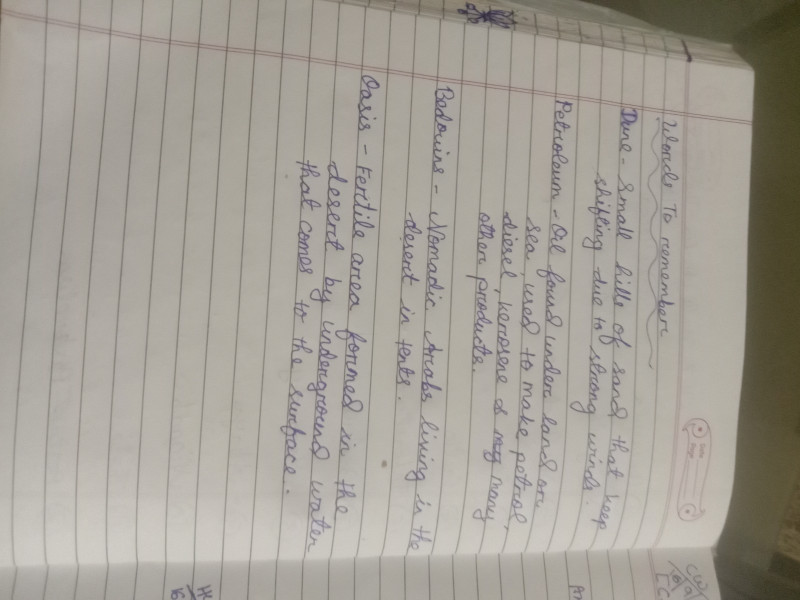 Words To remember
Dune - Small hills of sand that keep
shifting due to strong winds.
Petroleum - Oil found under land or
sea, used to make petrol,
diesel, kerosene & many
other products.
Bedouins - Nomadic Arabs living in the
desert in tents.
Oasis - Fertile area formed in the
desert by underground water
that comes to the surface.